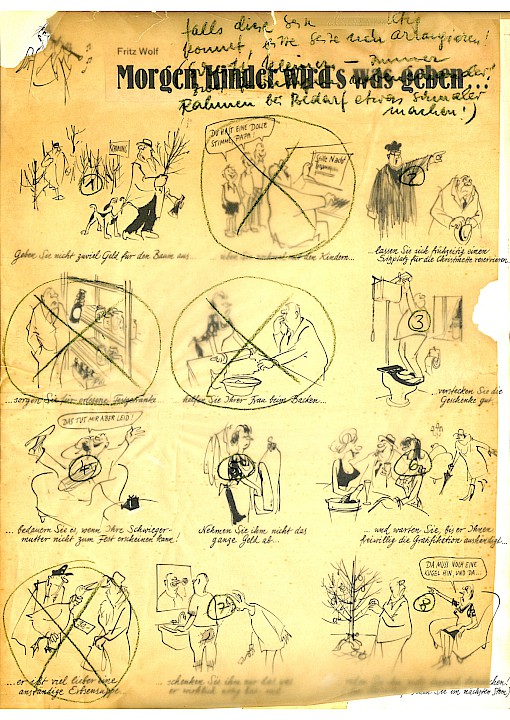 falls diese Seite
kommt, bitte Seite neu arrangieren!
immer
Fritz Wolf
Morgen Kinder wird's was geben...
Rahmen bei Bedarf etwas schmaler
machen!)
DU HAST EINE DOLLE
STIMME, PAPA!
SCHONUNG
Stille Nacht
1
2
Geben Sie nicht zuviel Geld für den Baum aus...
... üben Sie nochmal mit den Kindern...
... lassen Sie sich frühzeitig einen
Sitzplatz für die Christmette reservieren.
3
...sorgen Sie für erlesene Festgetränke...
helfen Sie Ihrer Frau beim Backen...
...verstecken Sie die
Geschenke gut,
DAS TUT MIR ABER LEID!
4
5
6
... bedauern Sie es, wenn Ihre Schwieger-
mutter nicht zum Fest erscheinen kann!
Nehmen Sie ihm nicht das
ganze Geld ab...
... und warten Sie, bis er Ihnen
freiwillig die Gratifikation aushändigt...
DA MUSS NOCH EINE
KUGEL HIN, UND DA...
7
8
...er ißt viel lieber eine
anständige Erbsensuppe.
... schenken Sie ihm nur das was
er wirklich
Sie im nächsten Stern)